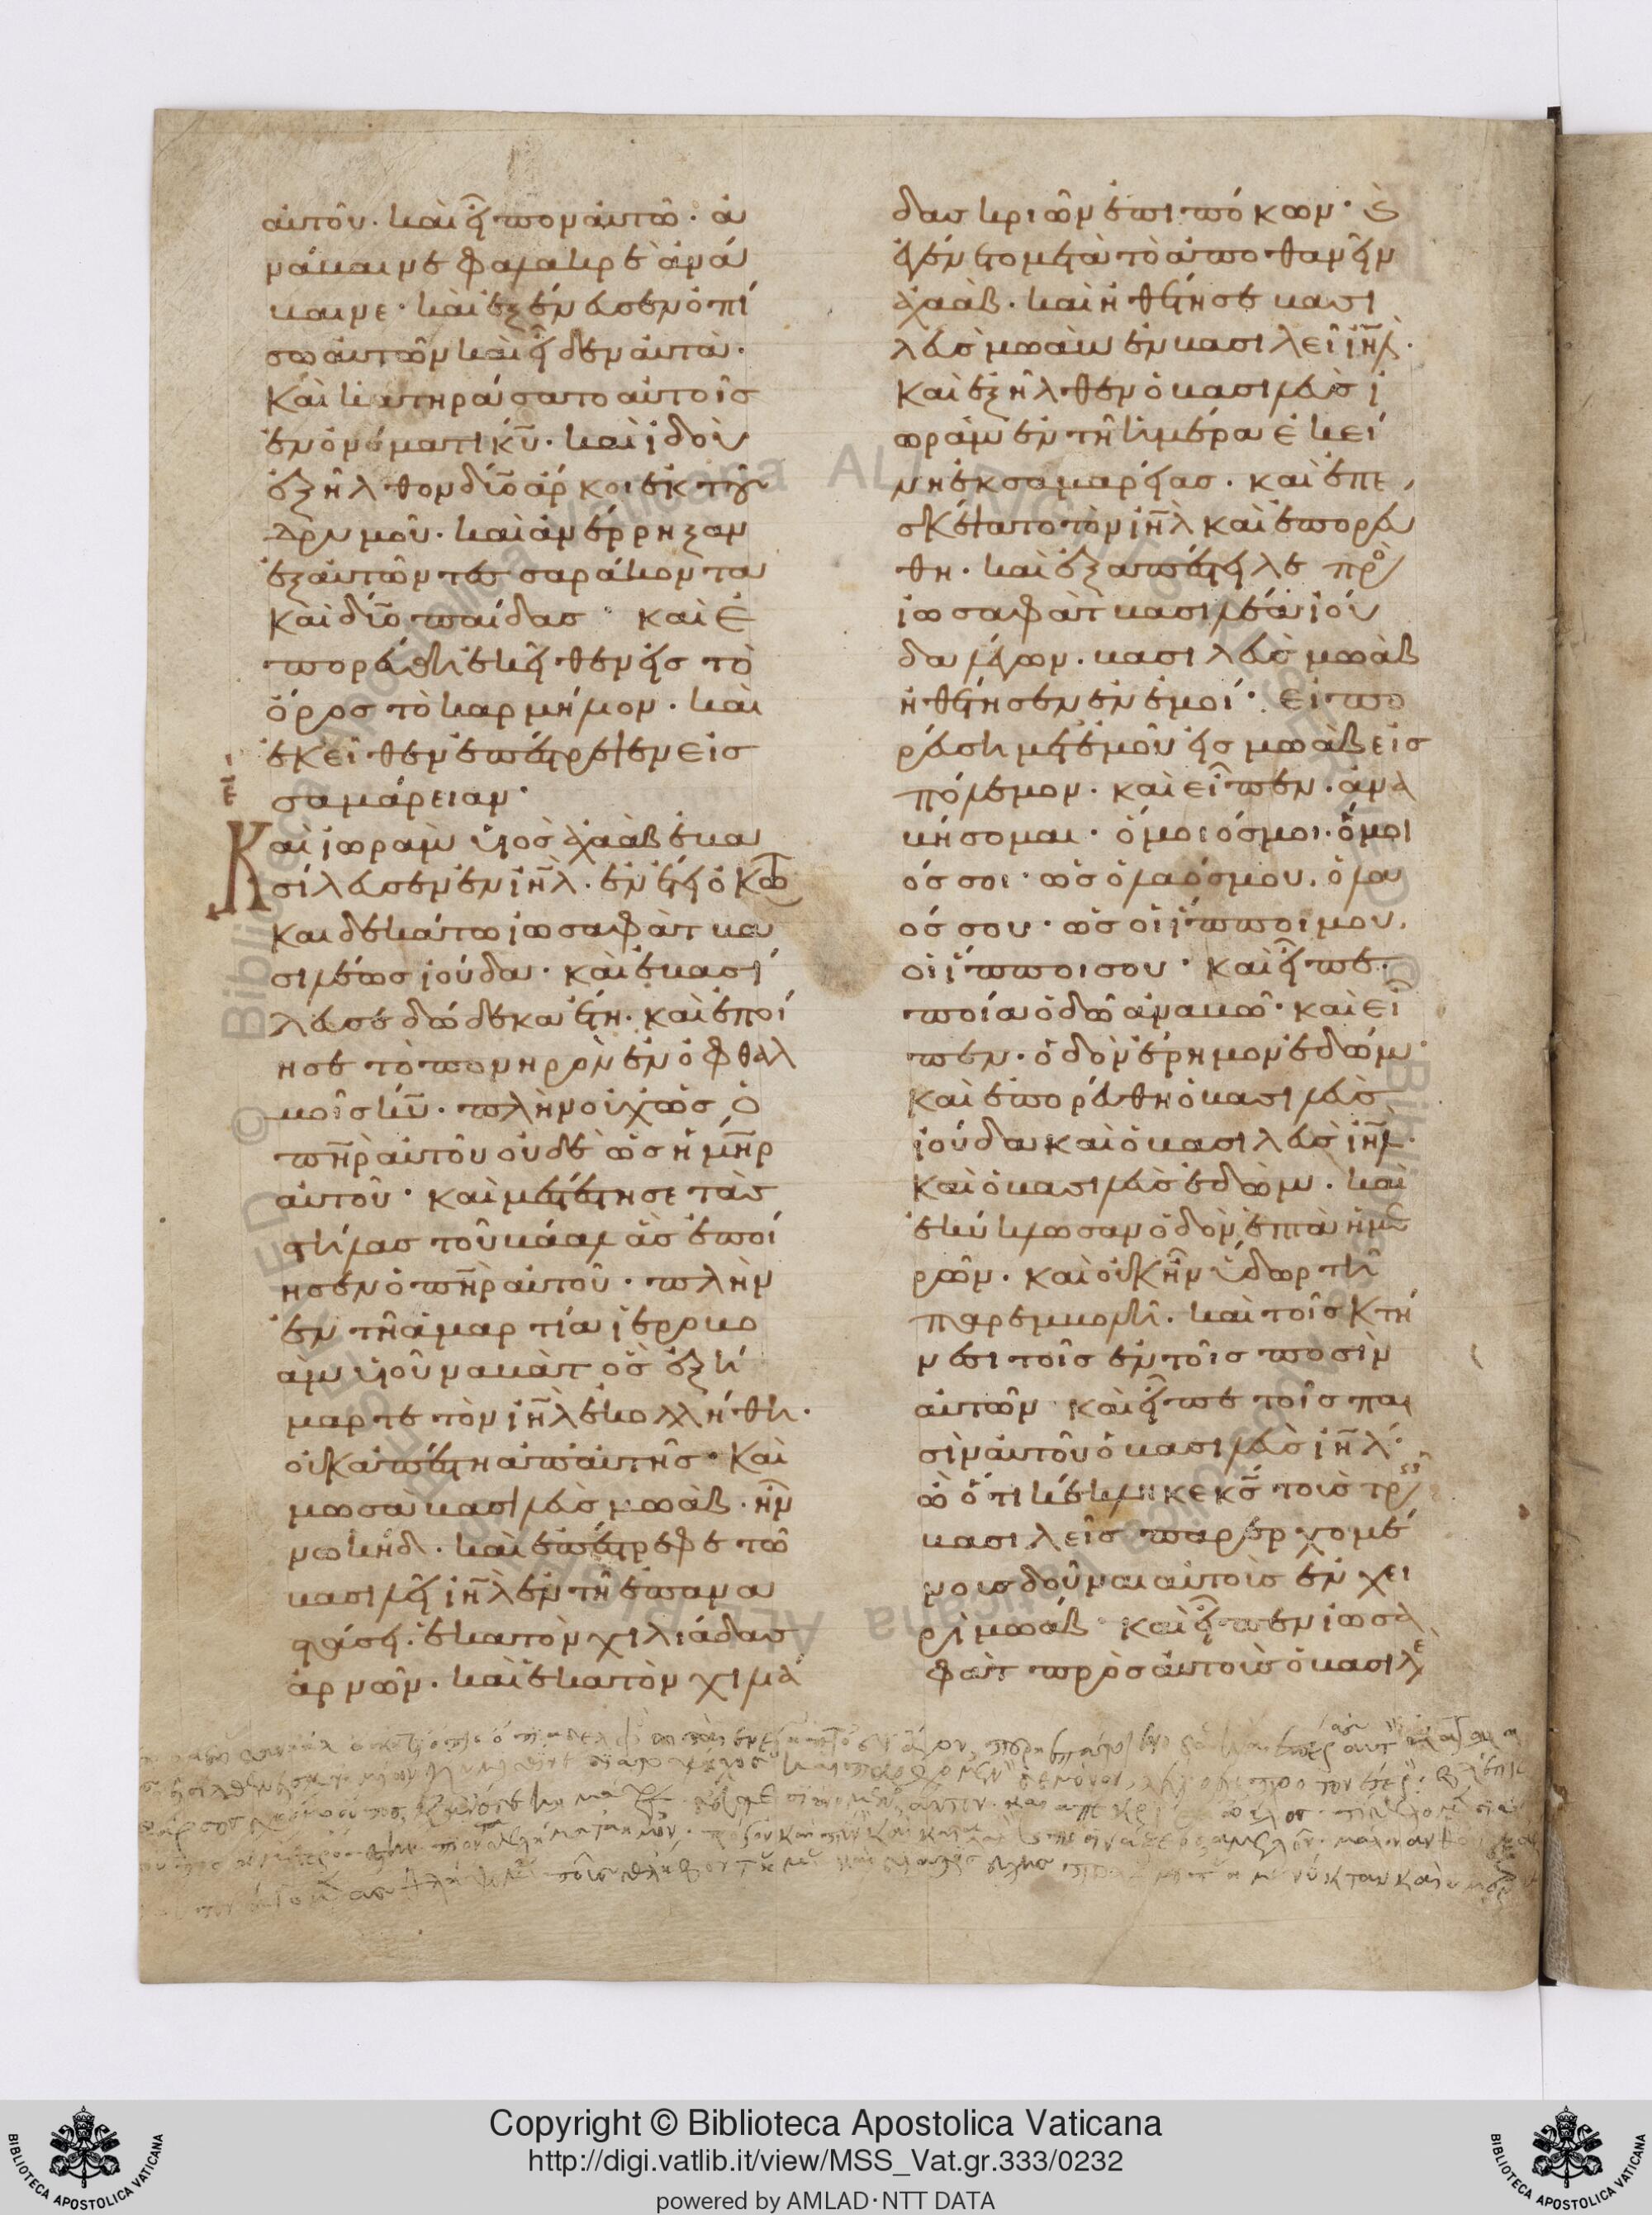 αὐτοῦ· καὶ εἶπον αὐτῶ· ἀ
νάβαινε φαλακρὲ ἀνά
βαινε· καὶ ἐξένευσεν ὀπί
σω αὐτῶν καὶ εἶδεν αὐτὰ·
Καὶ κατηράσατο αὐτοῖς
ἐν ὀνόματι κῦ· καὶ ἰδοὺ
ἐξῆλθον δύο ἄρκοι ἐκ τοῦ
δρυμοῦ· καὶ ἀνέρρηξαν
ἐξ αὐτῶν τεσσαράκοντα
καὶ δύο παίδας· καὶ ἐ
πορεύθη ἐκεῖθεν εἰς τὸ
ὄρος τὸ καρμήλιον· καὶ
ἐκεῖθεν ἐπέστρεψεν εἰς
σαμάρειαν·
Καὶ ἰωρὰμ υἱὸς ἀχαὰβ ἐβα
σίλευσεν ἐν ἰηλ· ἐν ἔτει ὀκτω
καιδεκάτω ἰωσαφὰτ βα
σιλέως ἰούδα· καὶ ἐβασί
λευσε δώδεκα ἔτη· καὶ ἐποί
ησε τὸ πονηρὸν ἐν ὀφθαλ
μοῖς κυ· πλὴν οὐχ ὡς ὁ
πηρ αὐτοῦ οὐδὲ ὡς ἡ μηρ
αὐτοῦ· καὶ μετέστησε τὰς
στήλας τοῦ βάαλ ἃς ἐποί
ησεν ὁ πηρ αὐτοῦ· πλὴν
ἐν τῆ ἁμαρτία ἱεροβο
ὰμ υἱοῦ ναβὰτ ὃς ἐξή
μαρτε τὸν ιηλ ἐκολλήθη·
οὐκ ἀπέστη ἀπ αὐτῆς· Καὶ
μωσὰ βασιλεὺς μωὰβ· ἦν
νωκήδ· καὶ ἐπέστρεφε τῶ
βασιλεῖ ιηλ ἐν τῆ ἐπανα
στάσει· ἑκατὸν χιλιάδας
ἀρνῶν· καὶ ἑκατὸν χιλιά
δας κριῶν ἐπὶ πόκων· καὶ
ἐγένετο μετὰ τὸ ἀποθανεῖν
ἀχαὰβ· καὶ ἠθέτησε βασι
λεὺς μωὰβ ἐν βασιλεῖ ιηλ·
Καὶ ἐξῆλθεν ὁ βασιλεὺς ἰ
ωρὰμ ἐν τῆ ἡμέρα ἐκεί
νη ἐκ σαμαρείας· καὶ ἐπε
σκέψατο τὸν ιηλ καὶ ἐπορεύ
θη· καὶ ἐξαπέστειλε πρὸς
ἰωσαφὰτ βασιλέα ἰού
δα λέγων· βασιλεὺς μωὰβ
ἠθέτησεν ἐν ἐμοί· εἰ πο
ρεύση μετ ἐμοῦ εἰς μωὰβ εἰς
πόλεμον· καὶ εἶπεν· ἀνα
βήσομαι· ὅμοιός μοι· ὅμοι
ός σοι· ὡς ὁ λαός μου, ὁ λα
ός σου· ὡς οἱ ἵπποι μου,
οἱ ἵπποι σου· καὶ εἶπε·
ποία ὁδῶ ἀναβῶ· καὶ εἶ
πεν· ὁδὸν ἔρημον ἐδώμ·
Καὶ ἐπορεύθη ὁ βασιλεὺς
ἰούδα καὶ ὁ βασιλεὺς ιηλ·
καὶ ὁ βασιλεὺς ἐδὼμ· καὶ
ἐκύκλωσαν ὁδὸν ἑπτὰ ἡμε
ρῶν· καὶ οὐκ ἦν ὕδωρ τῆ
παρεμβολῆ· καὶ τοῖς κτή
νεσι τοῖς ἐν τοῖς ποσὶν
αὐτῶν καὶ εἶπε τοῖς παι
σὶν αὐτοῦ ὁ βασιλεὺς ιηλ·
ὢ ὅτι κέκληκε κς τοὺς τρεῖς
βασιλεῖς παρερχομέ
νους δοῦναι αὐτοὺς ἐν χει
ρὶ μωάβ· καὶ εἶπεν ἰωσα
φὰτ πρὸς αὐτοὺς ὁ βασιλε
© Biblioteca Apostolica Vaticana ALL RIGHTS RESERVED
Copyright © Biblioteca Apostolica Vaticana
http://digi.vatlib.it/view/MSS_Vat.gr.333/0232
powered by AMLAD·NTT DATA
BIBLIOTECA APOSTOLICA VATICANA
BIBLIOTECA APOSTOLICA VATICANA